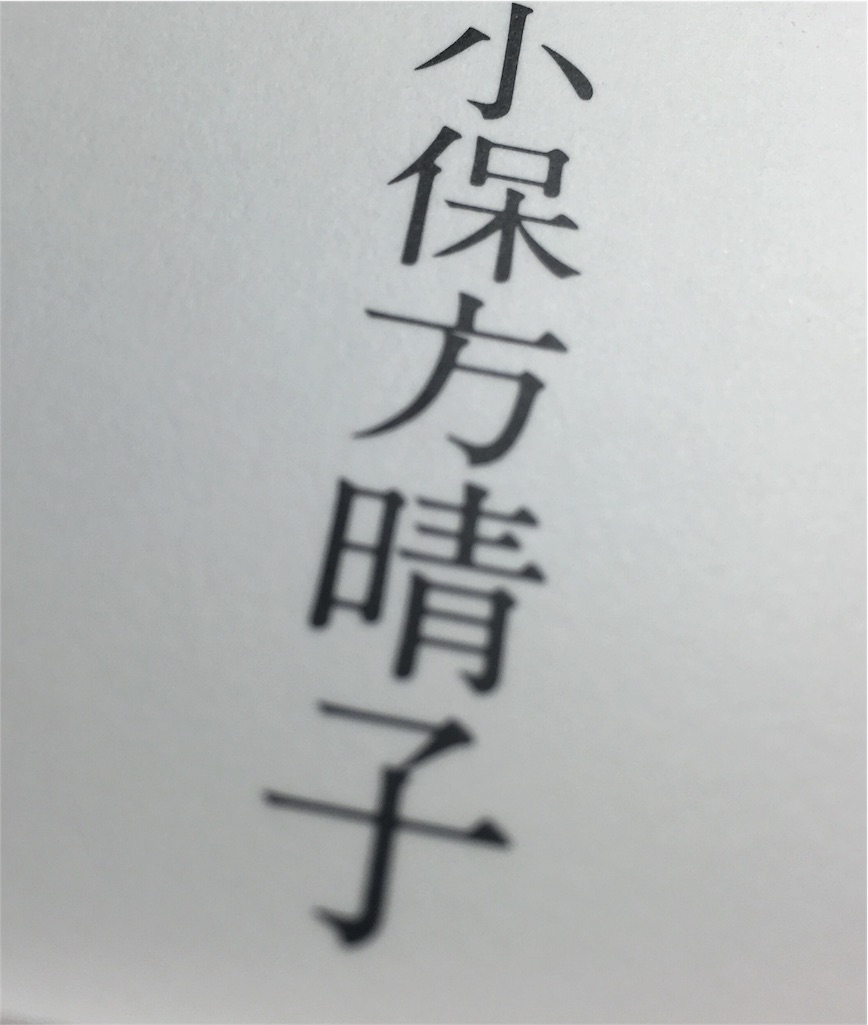 小保方晴子